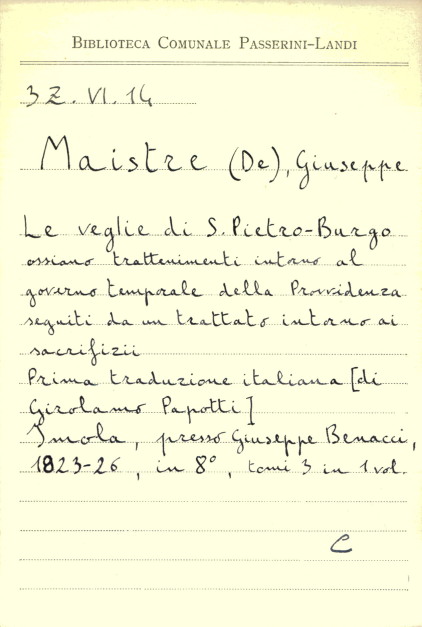 BIBLIOTECA COMUNALE PASSERINI-LANDI
3Z. VI. 14
Maistre (De), Giuseppe
Le veglie di S. Pietro-Burgo
ossiano trattenimenti intorno al
governo temporale della Provvidenza
seguiti da un trattato intorno ai
sacrifizii
Prima traduzione italiana [di
Girolamo Papotti]
Imola, presso Giuseppe Benacci,
1823-26, in 8°, tomi 3 in 1 vol.
C